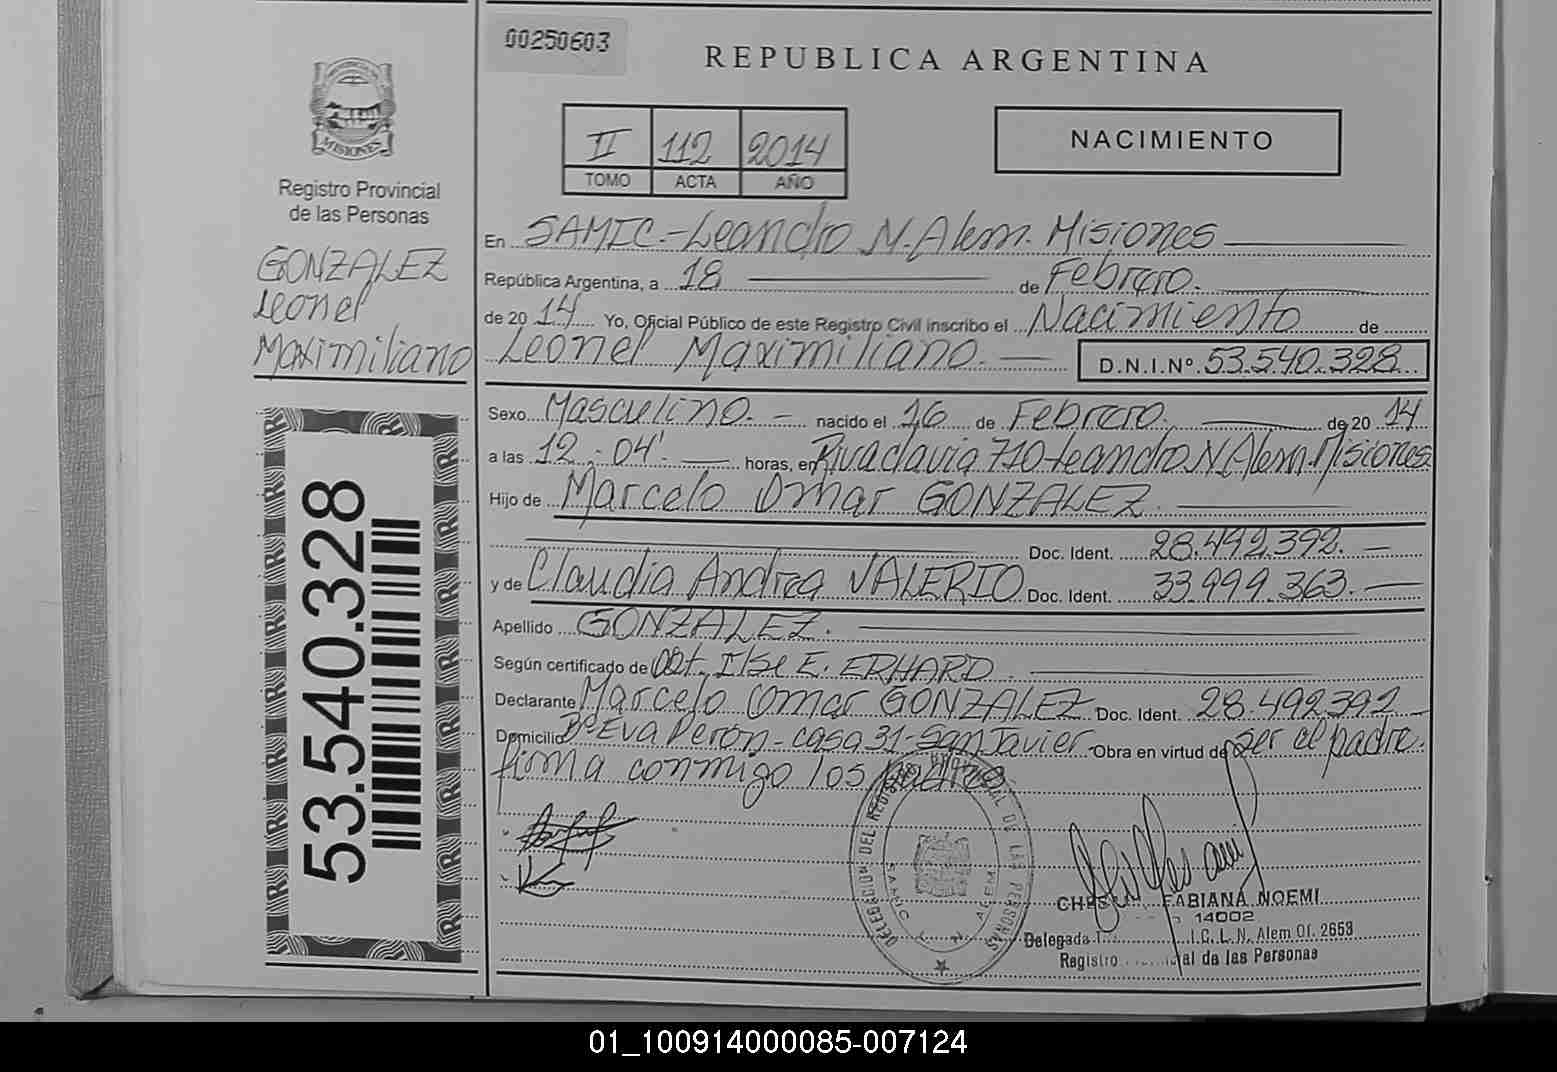 00250603
REPUBLICA ARGENTINA
II 112 2014
TOMO ACTA AÑO
NACIMIENTO
MISIONES
Registro Provincial
de las Personas
GONZALEZ
Leonel
Maximiliano
53.540.328
En SAMIC.-Leandro N. Alem. Misiones
República Argentina, a 18 de Febrero.
de 20 14 Yo, Oficial Público de este Registro Civil inscribo el Nacimiento de
Leonel Maximiliano. D.N.I.Nº. 53.540.328
Sexo Masculino.- nacido el 16 de Febrero. de 20 14
a las 12:04'. horas, en Rivadavia 710-Leandro N Alem. Misiones
Hijo de Marcelo Omar GONZALEZ.
Doc. Ident. 28.492.392.
y de Claudia Andrea VALERIO Doc. Ident. 33.999.363.
Apellido GONZALEZ.
Según certificado de Obt. Ilse E. ERHARD.
Declarante Marcelo Omar GONZALEZ. Doc. Ident. 28.492392
Domicilio Bº Eva Perón-casa 31-San Javier. Obra en virtud de ser el padre.
firma conmigo los padres
DELEGACION DEL REGISTRO PROVINCIAL DE LAS PERSONAS
SAMIC L. N. ALEM
FABIANA NOEMI
14002
Delegada I.C.L.N. Alem Of. 2653
Registro de las Personas
01_100914000085-007124